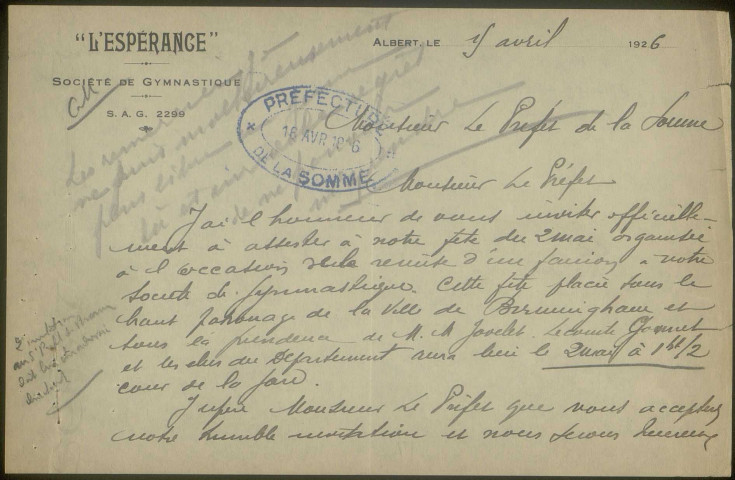 "L'ESPÉRANCE"
SOCIÉTÉ DE GYMNASTIQUE
S. A. G. 2299
ALBERT, LE 15 avril 1926
PRÉFECTURE
16 AVR 1926
DE LA SOMME
Les remercier
ne puis malheureusement
pas libre ce jour
là et exprimer regret
de ne pouvoir
Monsieur Le Préfet de la Somme
Monsieur Le Préfet
J'ai l'honneur de vous inviter officielle-
ment à assister à notre fête du 2 mai organisée
à l'occasion de la remise d'un fanion à notre
Société de Gymnastique. Cette fête placée sous le
haut patronage de la Ville de Birmingham et
sous la présidence de M. M. Jovelet, Lecomte
et les élus du Département aura lieu le 2 mai à 1h 1/2
cour de la
J'espère Monsieur Le Préfet que vous accepterez
notre humble invitation et nous serons heureux